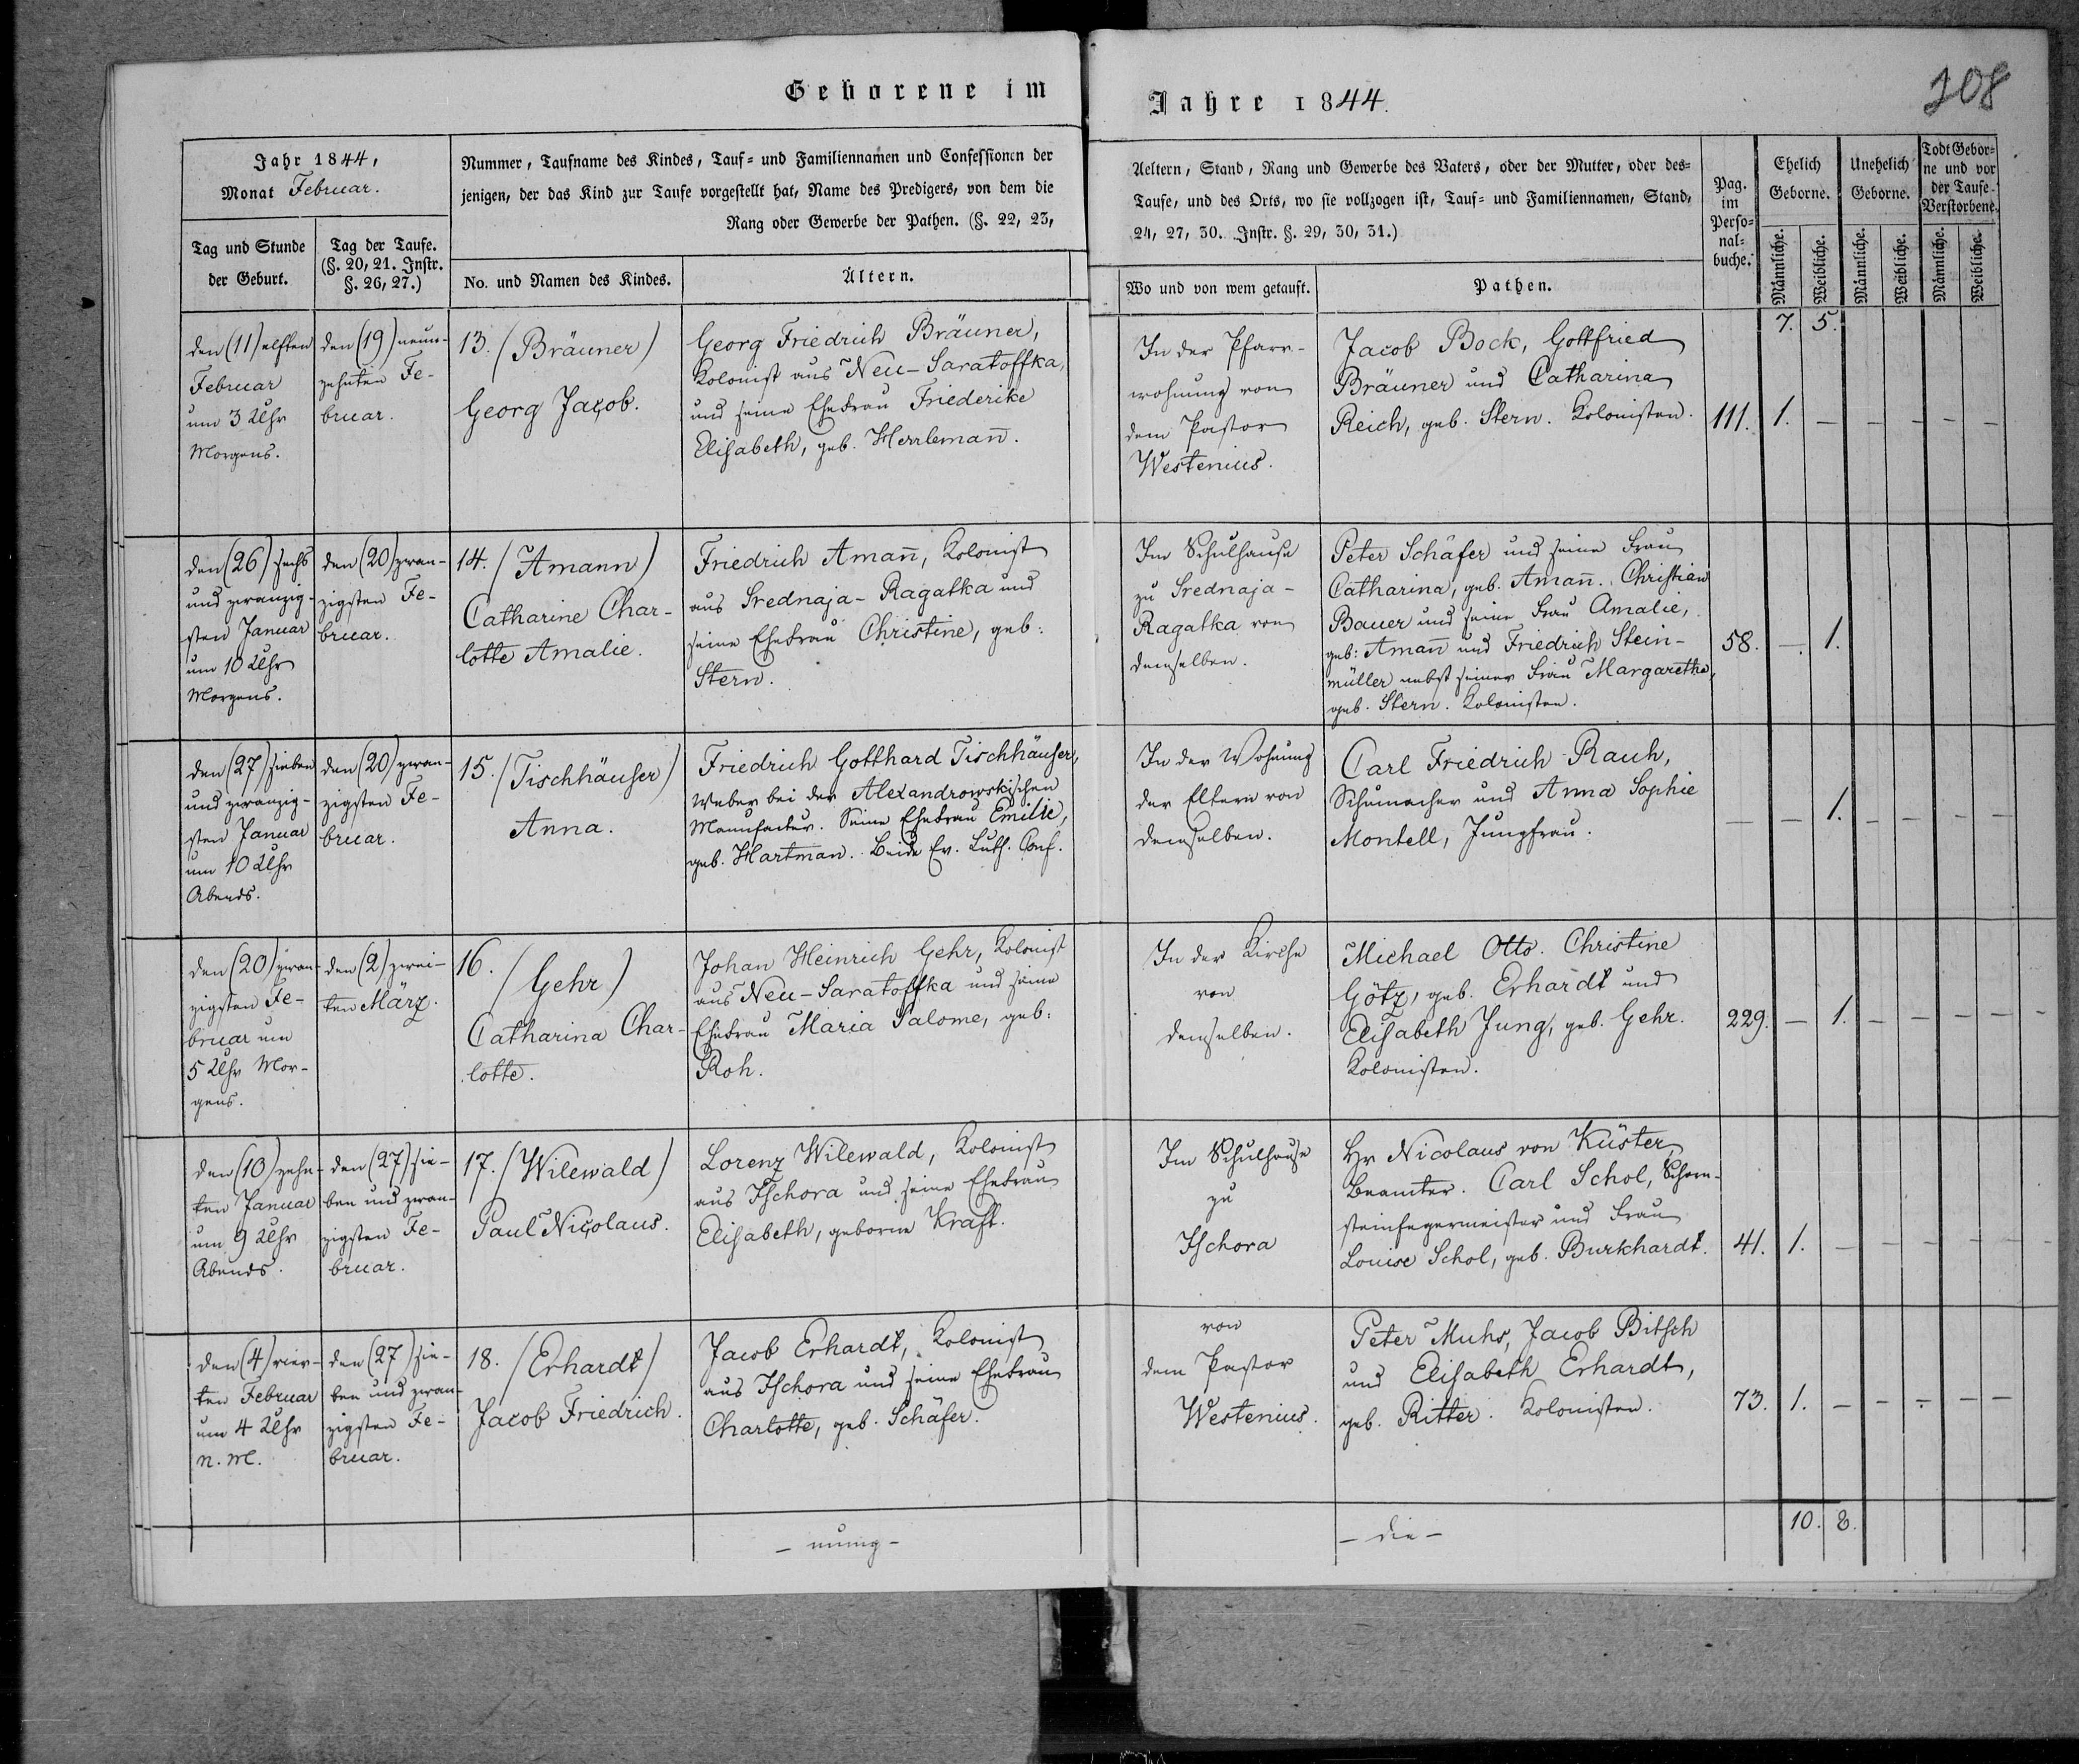 Geborene im
Jahre 1844.
108
Jahr 1844,
Monat Februar.
Nummer, Taufname des Kindes, Tauf- und Familiennamen und Confessionen der
jenigen, der das Kind zur Taufe vorgestellt hat, Name des Predigers, von dem die
Rang oder Gewerbe der Pathen. (§. 22, 23,
Tag und Stunde
der Geburt.
Tag der Taufe.
(§. 20, 21. Instr.
§. 26, 27.)
No. und Namen des Kindes.
Ältern.
Aeltern, Stand, Rang und Gewerbe des Vaters, oder der Mutter, oder des=
Taufe, und des Orts, wo sie vollzogen ist, Tauf- und Familiennamen, Stand,
24, 27, 30. Instr. §. 29, 30, 31.)
Wo und von wem getauft.
Pathen.
Pag.
im
Perso=
nal=
buche.
Ehelich
Geborne.
Unehelich
Geborne.
Todt Gebor=
ne und vor
der Taufe
Verstorbene.
Männliche.
Weibliche.
Männliche.
Weibliche.
Männliche.
Weibliche.
7. 5.
den (11) elften
Februar
um 3 Uhr
Morgens.
den (19) neun-
zehnten Fe-
bruar.
13. (Bräuner)
Georg Jacob.
Georg Friedrich Bräuner,
Kolonist aus Neu-Saratoffka,
und seine Ehefrau Friederike
Elisabeth, geb. Herrleman̄.
In der Pfarr-
wohnung von
dem Pastor
Westenius.
Jacob Bock, Gottfried
Bräuner und Catharina
Reich, geb. Stern. Kolonisten.
111. 1. — — — — —
den (26) sechs
und zwanzig-
sten Januar
um 10 Uhr
Morgens.
den (20) zwan-
zigsten Fe-
bruar.
14. (Amann)
Catharine Char-
lotte Amalie.
Friedrich Aman̄, Kolonist
aus Srednaja-Ragatka und
seine Ehefrau Christine, geb:
Stern.
Im Schulhause
zu Srednaja-
Ragatka von
demselben.
Peter Schäfer und seine Frau
Catharina, geb. Aman̄. Christian
Bauer und seine Frau Amalie,
geb: Aman̄ und Friedrich Stein-
müller nebst seiner Frau Margaretha,
geb. Stern. Kolonisten.
58. —. 1.
den (27) sieben
und zwanzig-
sten Januar
um 10 Uhr
Abends.
den (20) zwan-
zigsten Fe-
bruar.
15. (Tischhäuser)
Anna.
Friedrich Gotthard Tischhäuser,
Weber bei der Alexandrowskischen
Manufactur. Seine Ehefrau Emilie,
geb. Hartman. Beide Ev. Luth. Conf.
In der Wohnung
der Eltern von
demselben.
Carl Friedrich Rauh,
Schumacher und Anna Sophie
Montell, Jungfrau.
— — 1. — — — —
den (20) zwan-
zigsten Fe-
bruar um
5 Uhr Mor-
gens.
den (2) zwei-
ten März.
16. (Gehr)
Catharina Char-
lotte.
Johan Heinrich Gehr, Kolonist
aus Neu-Saratoffka und seine
Ehefrau Maria Salome, geb:
Roh.
In der Kirche
von
demselben.
Michael Otto. Christine
Götz, geb. Erhardt und
Elisabeth Jung, geb. Gehr.
Kolonisten.
229. — 1. — — — —
den (10) zehn-
ten Januar
um 9 Uhr
Abends.
den (27) sie-
ben und zwan-
zigsten Fe-
bruar.
17. (Wilewald)
Paul Nicolaus.
Lorenz Wilewald, Kolonist
aus Ischora und seine Ehefrau
Elisabeth, geborne Kraft.
Im Schulhause
zu
Ischora
Hr Nicolaus von Küster,
Beamter. Carl Schol, Schorn-
steinfegermeister und Frau
Louise Schol, geb. Burkhardt.
41. 1. — — — — —
den (4) vier-
ten Februar
um 4 Uhr
N. M.
den (27) sie-
ben und zwan-
zigsten Fe-
bruar.
18. (Erhardt)
Jacob Friedrich.
Jacob Erhardt, Kolonist
aus Ischora und seine Ehefrau
Charlotte, geb. Schäfer.
von
dem Pastor
Westenius.
Peter Muhs, Jacob Bitsch
und Elisabeth Erhardt,
geb. Ritter. Kolonisten.
73. 1. — — — — —
— die —
10. 8.